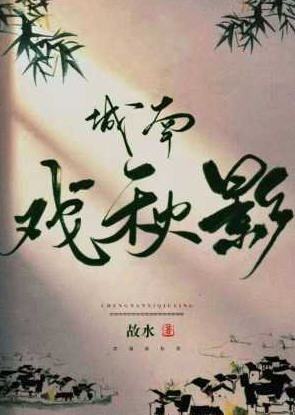 城南
戏秋影
CHENGNANXIQIUXING
故水 著